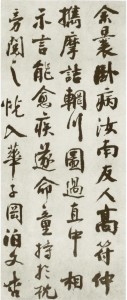 余曩卧病汝南友人高符仲
携摩诘辋川圖過直中相
示言能愈疾遂命童持於枕
旁閱之恍入華子岡泊文杏